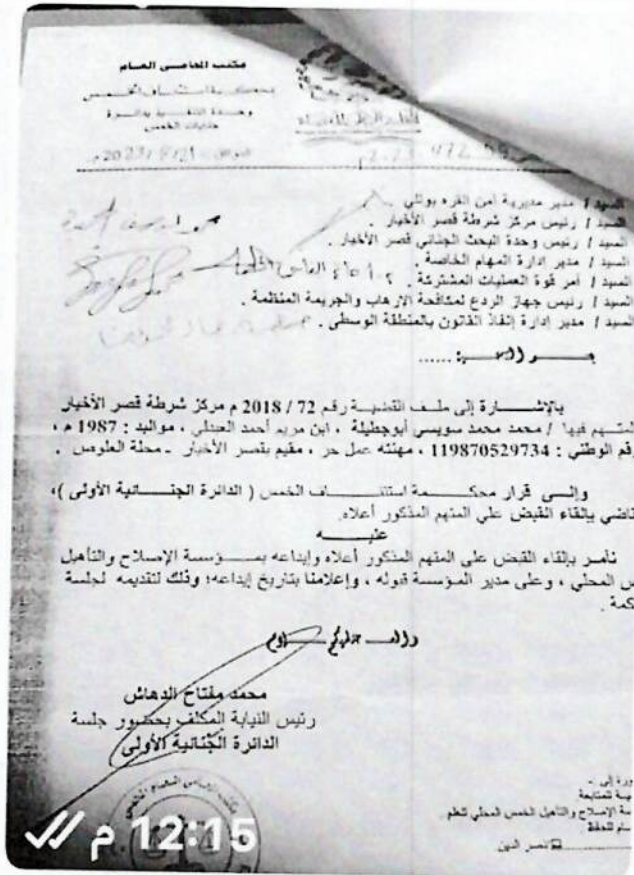 مكتب المحامي العام
بمحكمة استئناف الخمس
وحدة التنفيذ بدائرة
جنايات الخمس
السيد / مدير مديرية أمن القره بوللي .
السيد / رئيس مركز شرطة قصر الأخيار .
السيد / رئيس وحدة البحث الجنائي قصر الأخيار .
السيد / مدير إدارة المهام الخاصة .
السيد / آمر قوة العمليات المشتركة .
السيد / رئيس جهاز الردع لمكافحة الإرهاب والجريمة المنظمة .
السيد / مدير إدارة إنفاذ القانون بالمنطقة الوسطى .
بعد التحية ......
بالإشارة إلى ملف القضية رقم 72 / 2018 م مركز شرطة قصر الأخيار
المتهم فيها / محمد محمد سويسي أبوجطيلة ، ابن مريم أحمد العبدلي ، مواليد : 1987 م ،
رقم الوطني : 119870529734 ، مهنته عمل حر ، مقيم بقصر الأخيار - محلة العلوص .
وإلى قرار محكمة استئناف الخمس ( الدائرة الجنائية الأولى )،
قاضي بإلقاء القبض علي المتهم المذكور أعلاه.
عليه
نأمر بإلقاء القبض على المتهم المذكور أعلاه وإيداعه بمؤسسة الإصلاح والتأهيل
المحلي ، وعلى مدير المؤسسة قبوله ، وإعلامنا بتاريخ إيداعه؛ وذلك لتقديمه لجلسة
كمة .
والسلام عليكم
محمد مفتاح الدهاش
رئيس النيابة المكلف بحضور جلسة
الدائرة الجنائية الأولى
ورة إلى -
ية للمتابعة
سة الإصلاح والتأهيل الخمس المحلي للعلم
نصر الدين
12:15 م